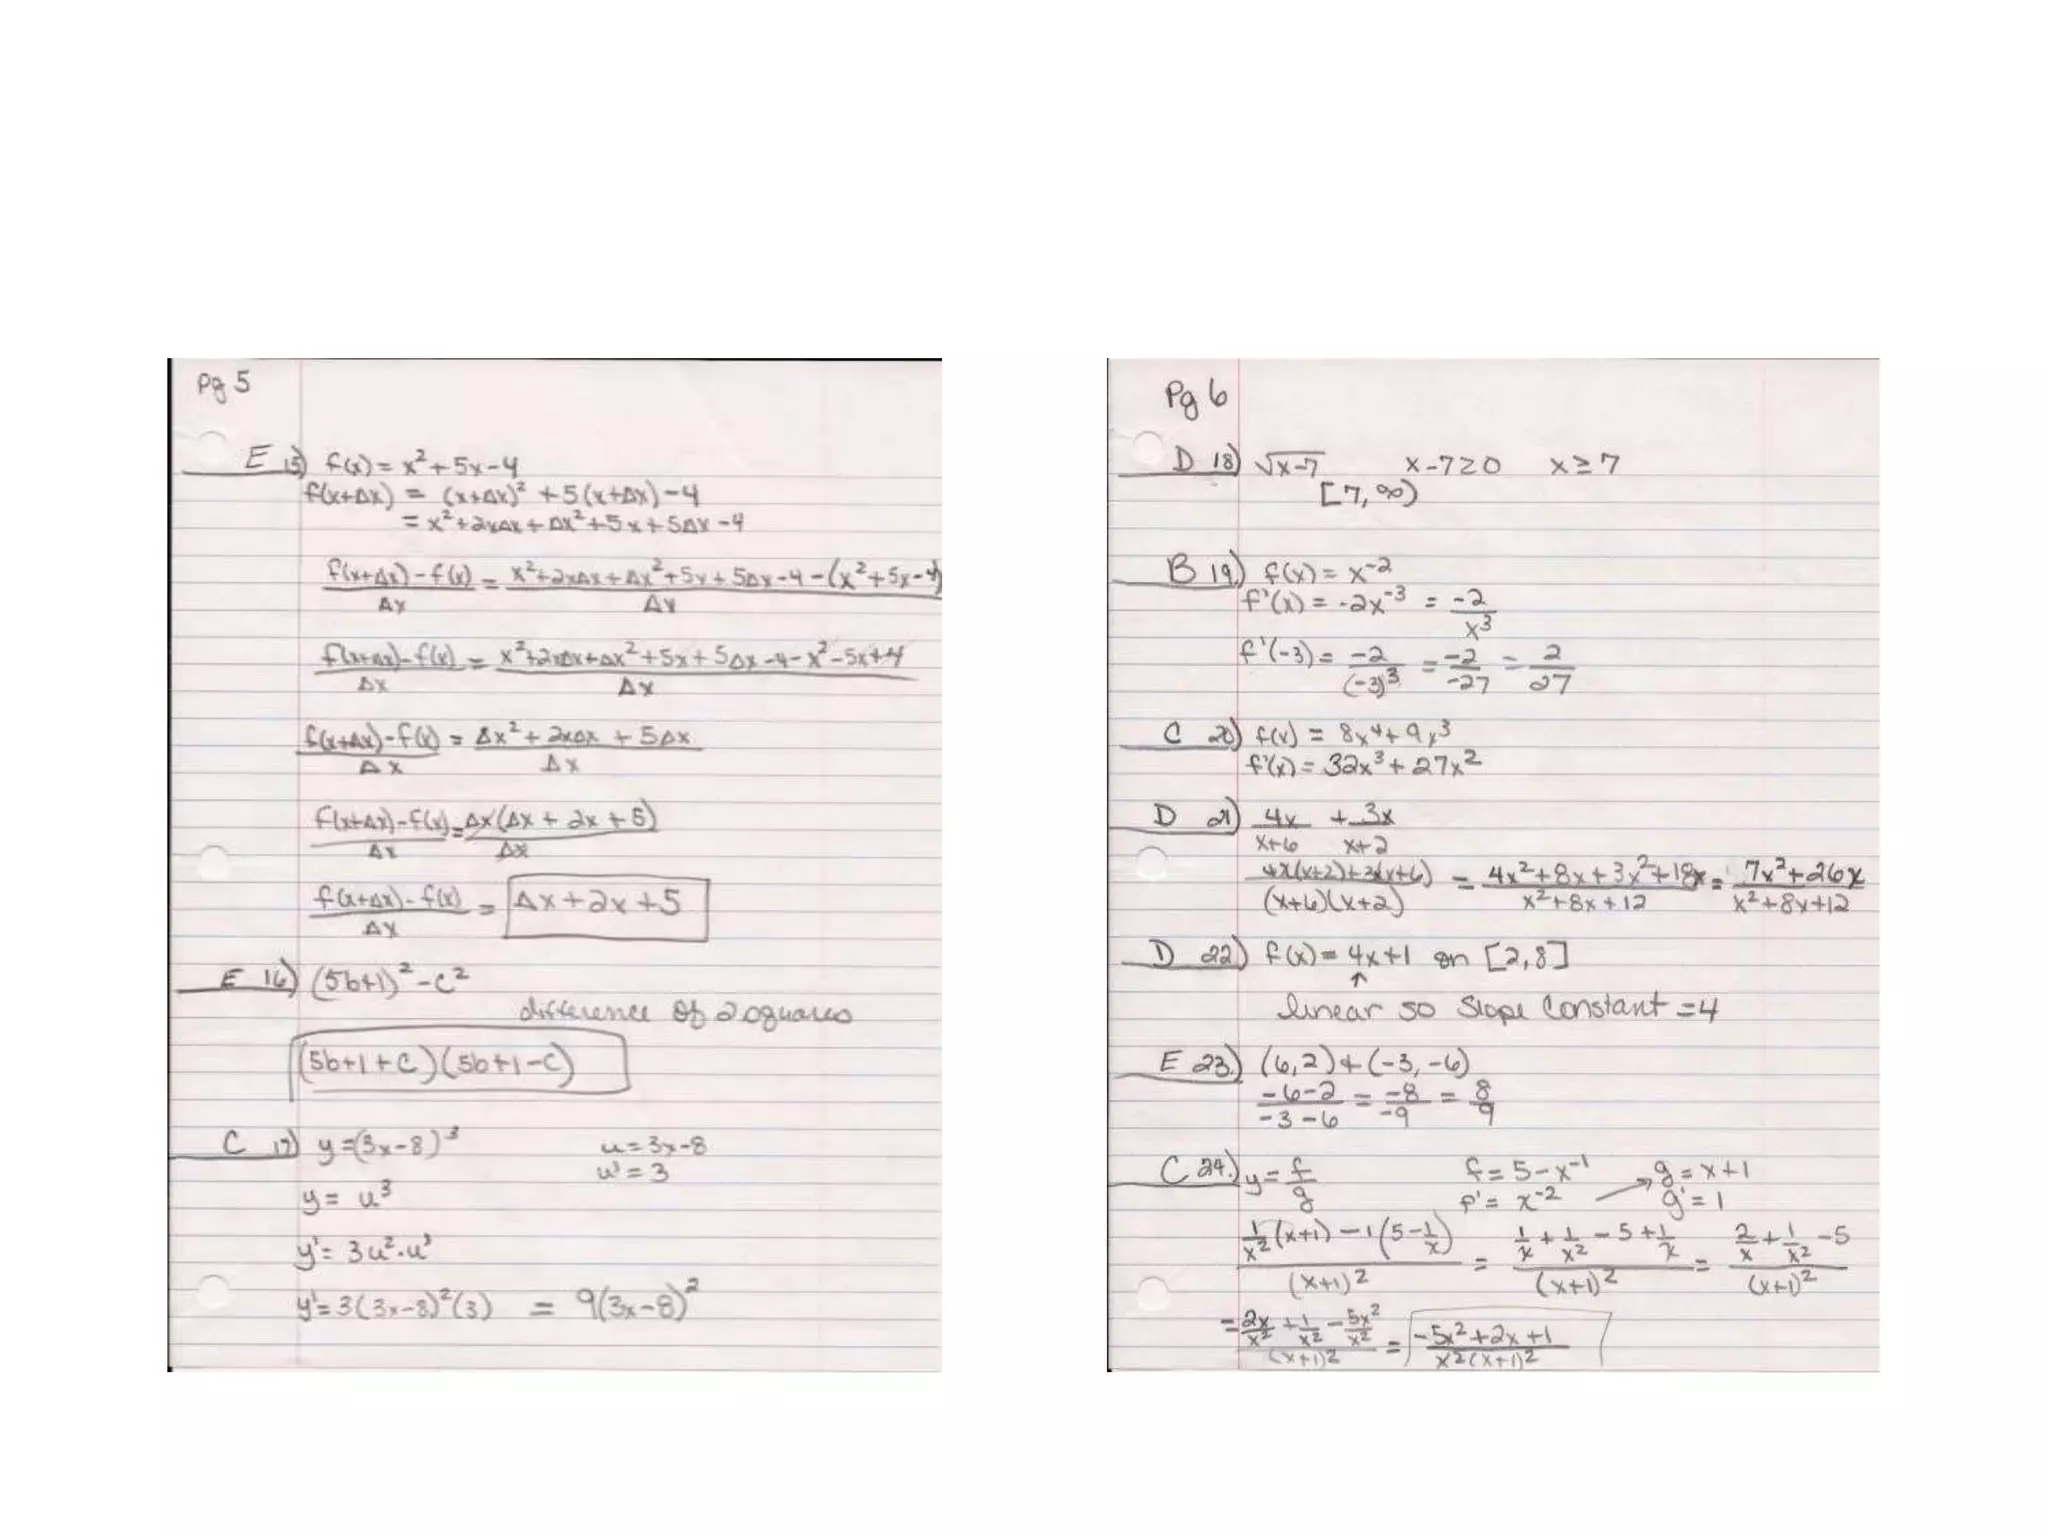 Pg 5
E 15) f(x) = x² + 5x - 4
f(x+Δx) = (x+Δx)² + 5(x+Δx) - 4
= x² + 2xΔx + Δx² + 5x + 5Δx - 4
f(x+Δx) - f(x) / Δx = x² + 2xΔx + Δx² + 5x + 5Δx - 4 - (x² + 5x - 4) / Δx
f(x+Δx) - f(x) / Δx = x² + 2xΔx + Δx² + 5x + 5Δx - 4 - x² - 5x + 4 / Δx
f(x+Δx) - f(x) / Δx = Δx² + 2xΔx + 5Δx / Δx
f(x+Δx) - f(x) / Δx = Δx(Δx + 2x + 5) / Δx
f(x+Δx) - f(x) / Δx = Δx + 2x + 5
E 16) (5b+1)² - c²
difference of 2 squares
(5b+1+c)(5b+1-c)
C 17) y = (3x-8)³ u = 3x-8
u' = 3
y = u³
y' = 3u²·u'
y' = 3(3x-8)²(3) = 9(3x-8)²
Pg 6
D 18) √x-7 x-7≥0 x≥7
[7, ∞)
B 19.) f(x) = x⁻²
f'(x) = -2x⁻³ = -2 / x³
f'(-3) = -2 / (-3)³ = -2 / -27 = 2 / 27
C 20) f(x) = 8x⁴ + 9x³
f'(x) = 32x³ + 27x²
D 21) 4x / x+6 + 3x / x+2
4x(x+2)+3x(x+6) / (x+6)(x+2) = 4x²+8x+3x²+18x / x²+8x+12 = 7x²+26x / x²+8x+12
D 22.) f(x) = 4x+1 on [2,8]
↑
linear so slope constant = 4
E 23.) (6,2) + (-3,-6)
-6-2 / -3-6 = -8 / -9 = 8 / 9
C 24.) y = f / g f = 5 - x⁻¹ g = x+1
f' = x⁻² g' = 1
1/x² (x+1) - 1(5 - 1/x) / (x+1)² = 1/x + 1/x² - 5 + 1/x / (x+1)² = 2/x + 1/x² - 5 / (x+1)²
= 2x/x² + 1/x² - 5x²/x² / (x+1)² = -5x²+2x+1 / x²(x+1)²